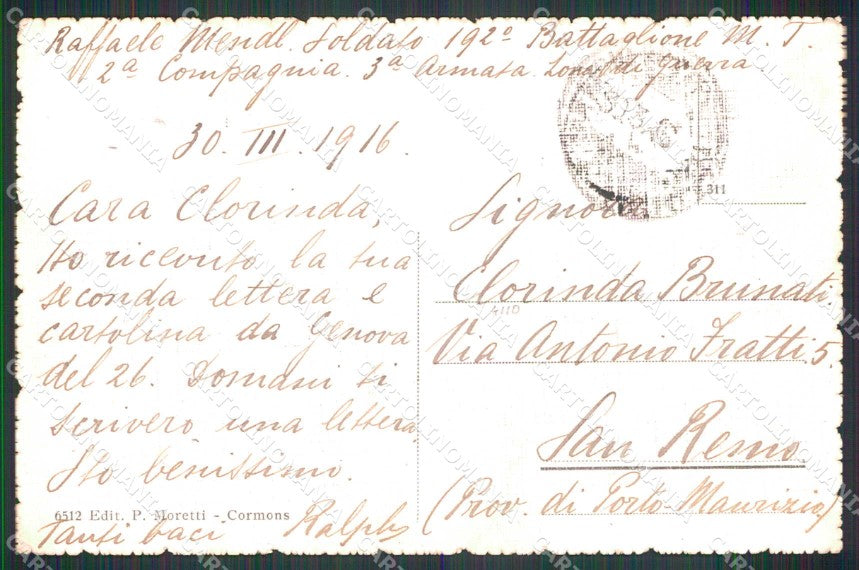 Raffaele Mendl. Soldato 192º Battaglione M. T.
2ª Compagnia. 3ª Armata. Zona di guerra
30. III. 1916.
Cara Clorinda,
Ho ricevuto la tua
seconda lettera e
cartolina da Genova
del 26. Domani ti
scriverò una lettera.
Sto benissimo.
Tanti baci Ralph
6512 Edit. P. Moretti - Cormons
311
Signora
Clorinda Brunati.
4110
Via Antonio Fratti 5.
San Remo
(Prov. di Porto Maurizio)
CARTOLINOMANIA